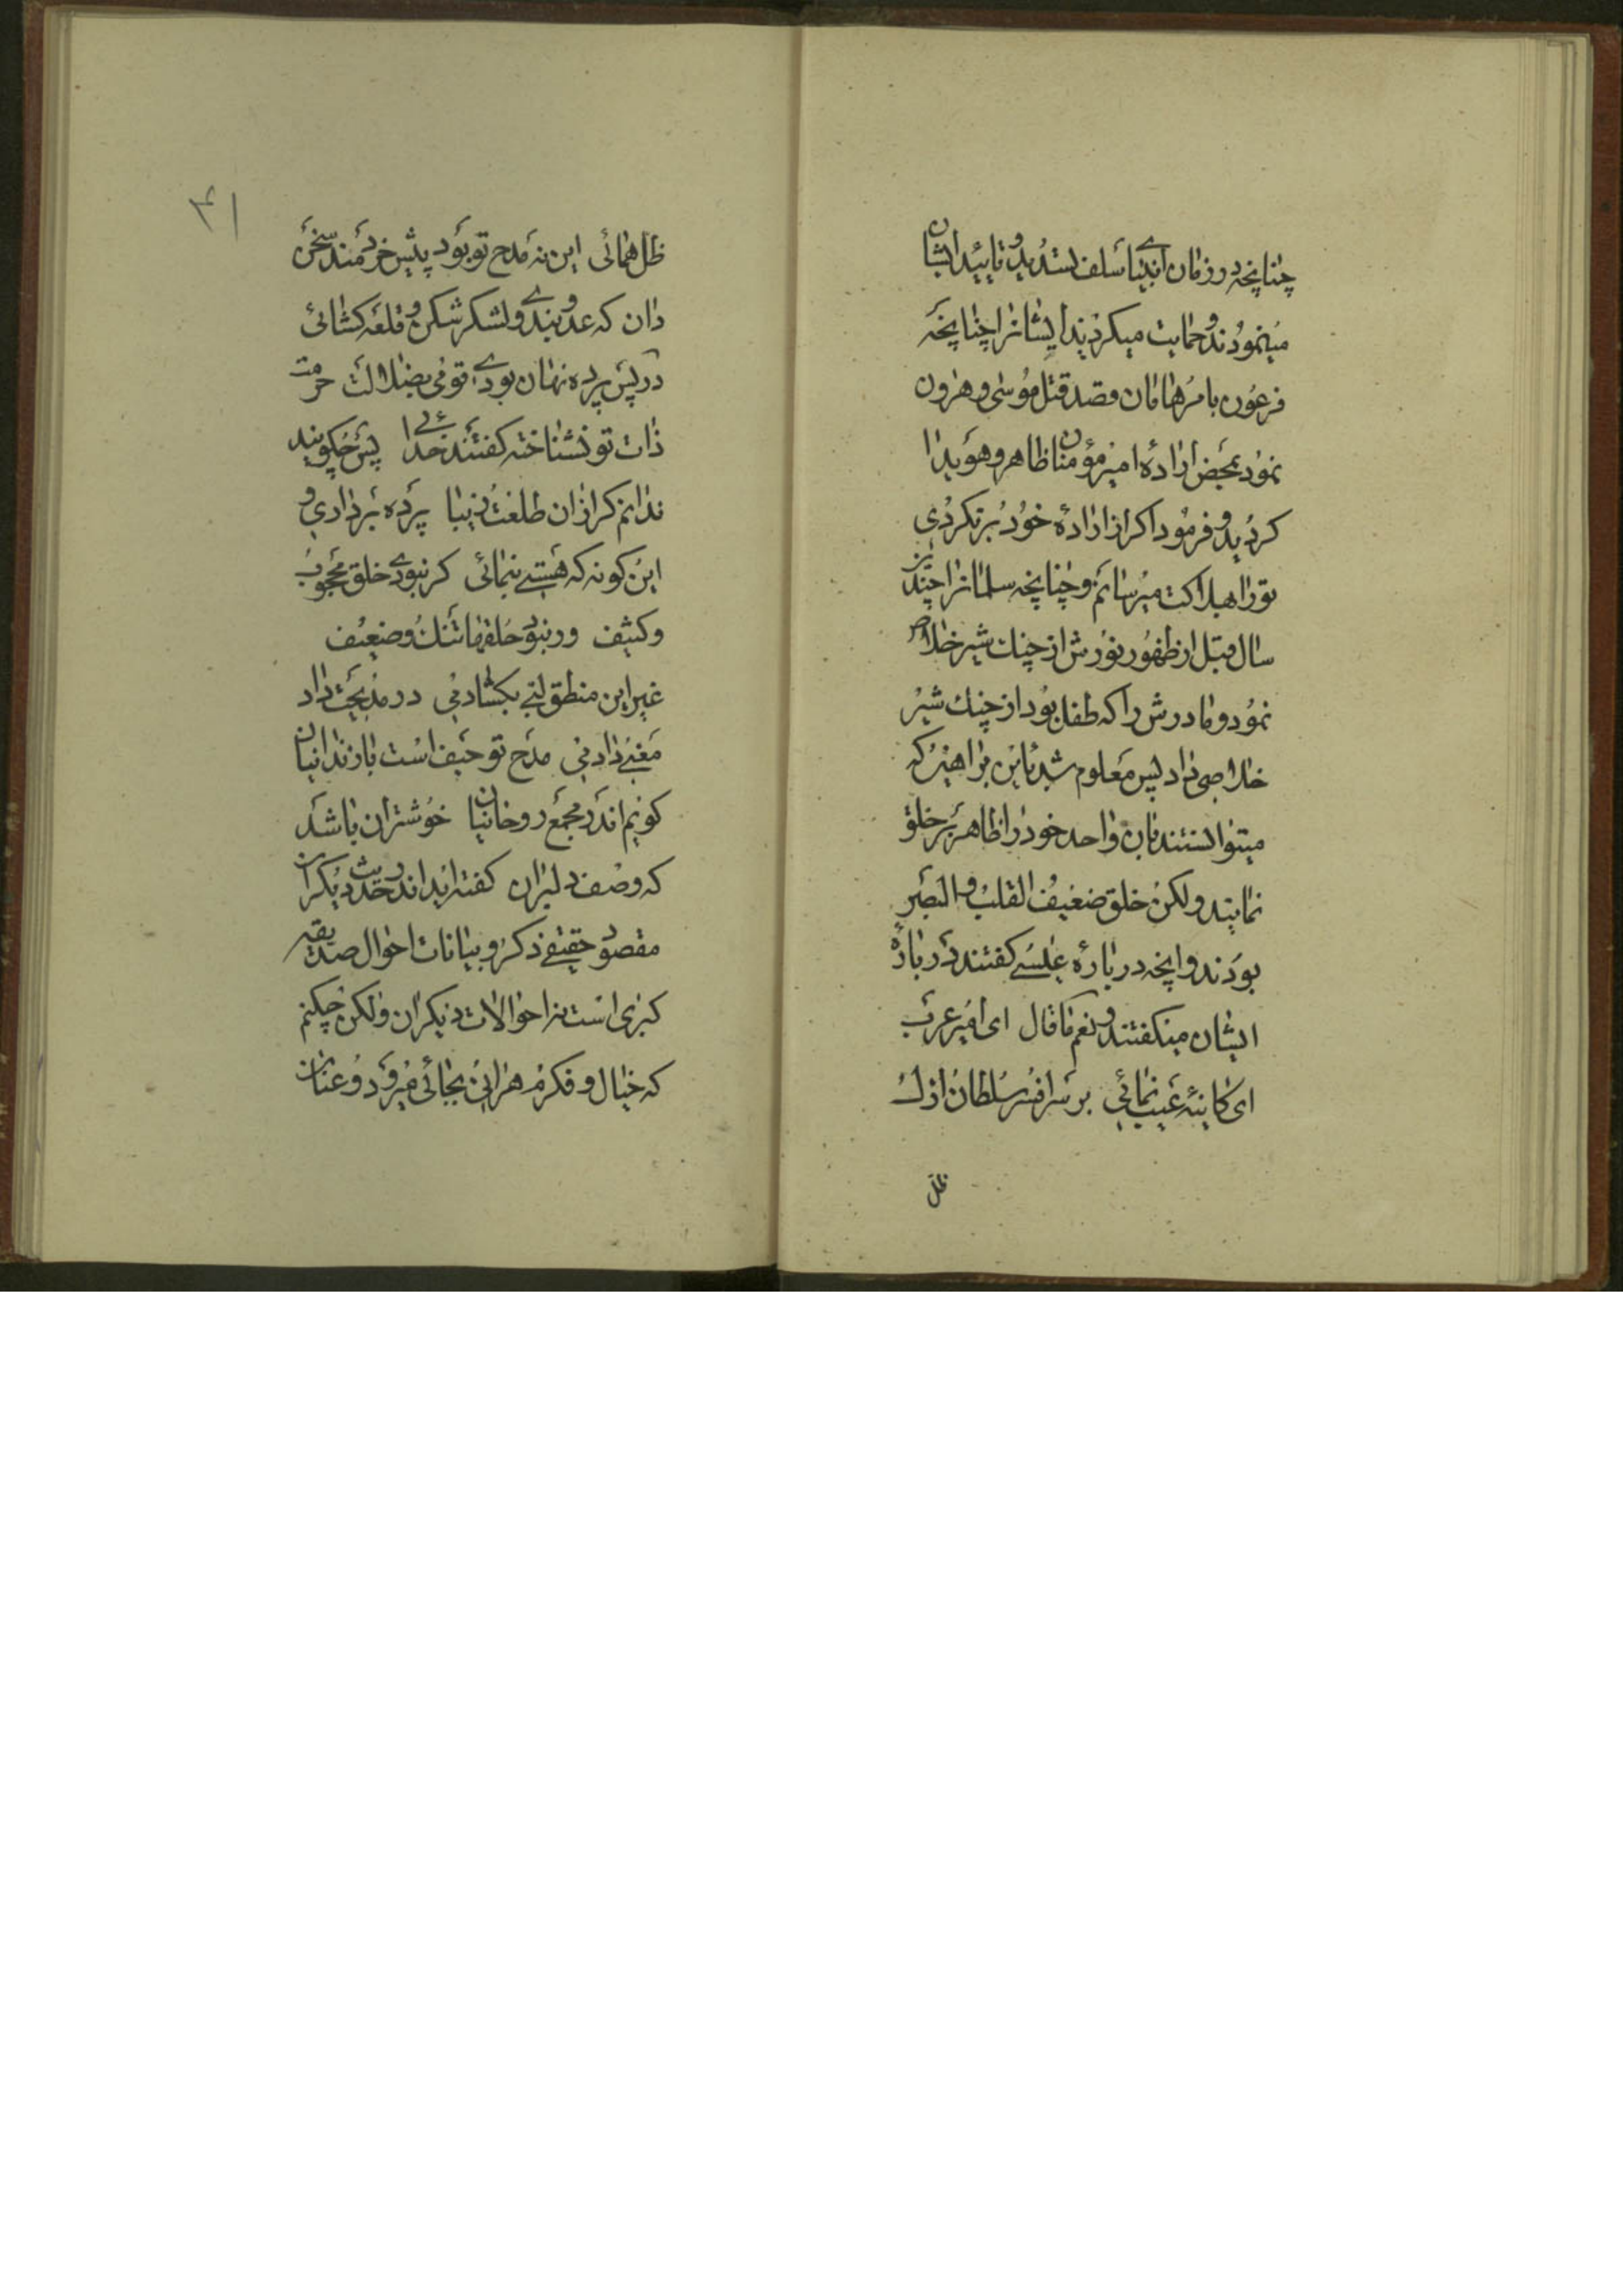 چنانچه در زمان انبیای سلف تسدید و تایید ایشان
مینمودند و حمایت میکردند ایشانرا چنانچه
فرعون بامر هامان قصد قتل موسی و هرون
نمود بمحض اراده امیر مؤمنان ظاهر و هویدا
کردید و فرمود اکر از اراده خود برنکردی
تو را هلاکت میرسانم و چنانچه سلمانرا چندین
سال قبل از ظهور نورش از چنك شیر خلاص
نمود و مادرش را که طفل بود از چنك شیر
خلاصی داد پس معلوم شد باین براهین که
میتوانستند بان واحد خود را ظاهر بر خلق
نمایند ولکن خلق ضعیف القلب و البصر
بودند و انچه در باره عیسی کفتند در باره
ایشان میکفتند و نعم ما قال ای امیر عرب
ای کاینه غیب نمائی بر سر افسر سلطان ازل
ظل
۴۱
ظل همائی این نه مدح تو بود پیش خردمند سخن
دان که عدو بندی و لشکر شکن و قلعه کشائی
در پس پرده نهان بودی قومی بضلالت حرمت
ذات تو نشناخته کفتند خدائی پس چکویند
ندانم کر ازان طلعت زیبا پرده برداری و
این کونه که هستی بنمائی کر نبودی خلق محجوب
و کثیف ور نبودی حلقها تنك و ضعیف
غیر این منطق لبی بکشادمی در مدیحت داد
معنی دادمی مدح تو حیف است با زندانیان
کویم اندر مجمع روحانیان خوشتر ان باشد
که وصف دلبران کفته اید اندر حدیث دیکران
مقصود حقیقی ذکر و بیانات احوال صدیقه
کبری است نه احوالات دیکران ولکن چکنم
که خیال و فکرم هر انی بجائی میرود و عنان